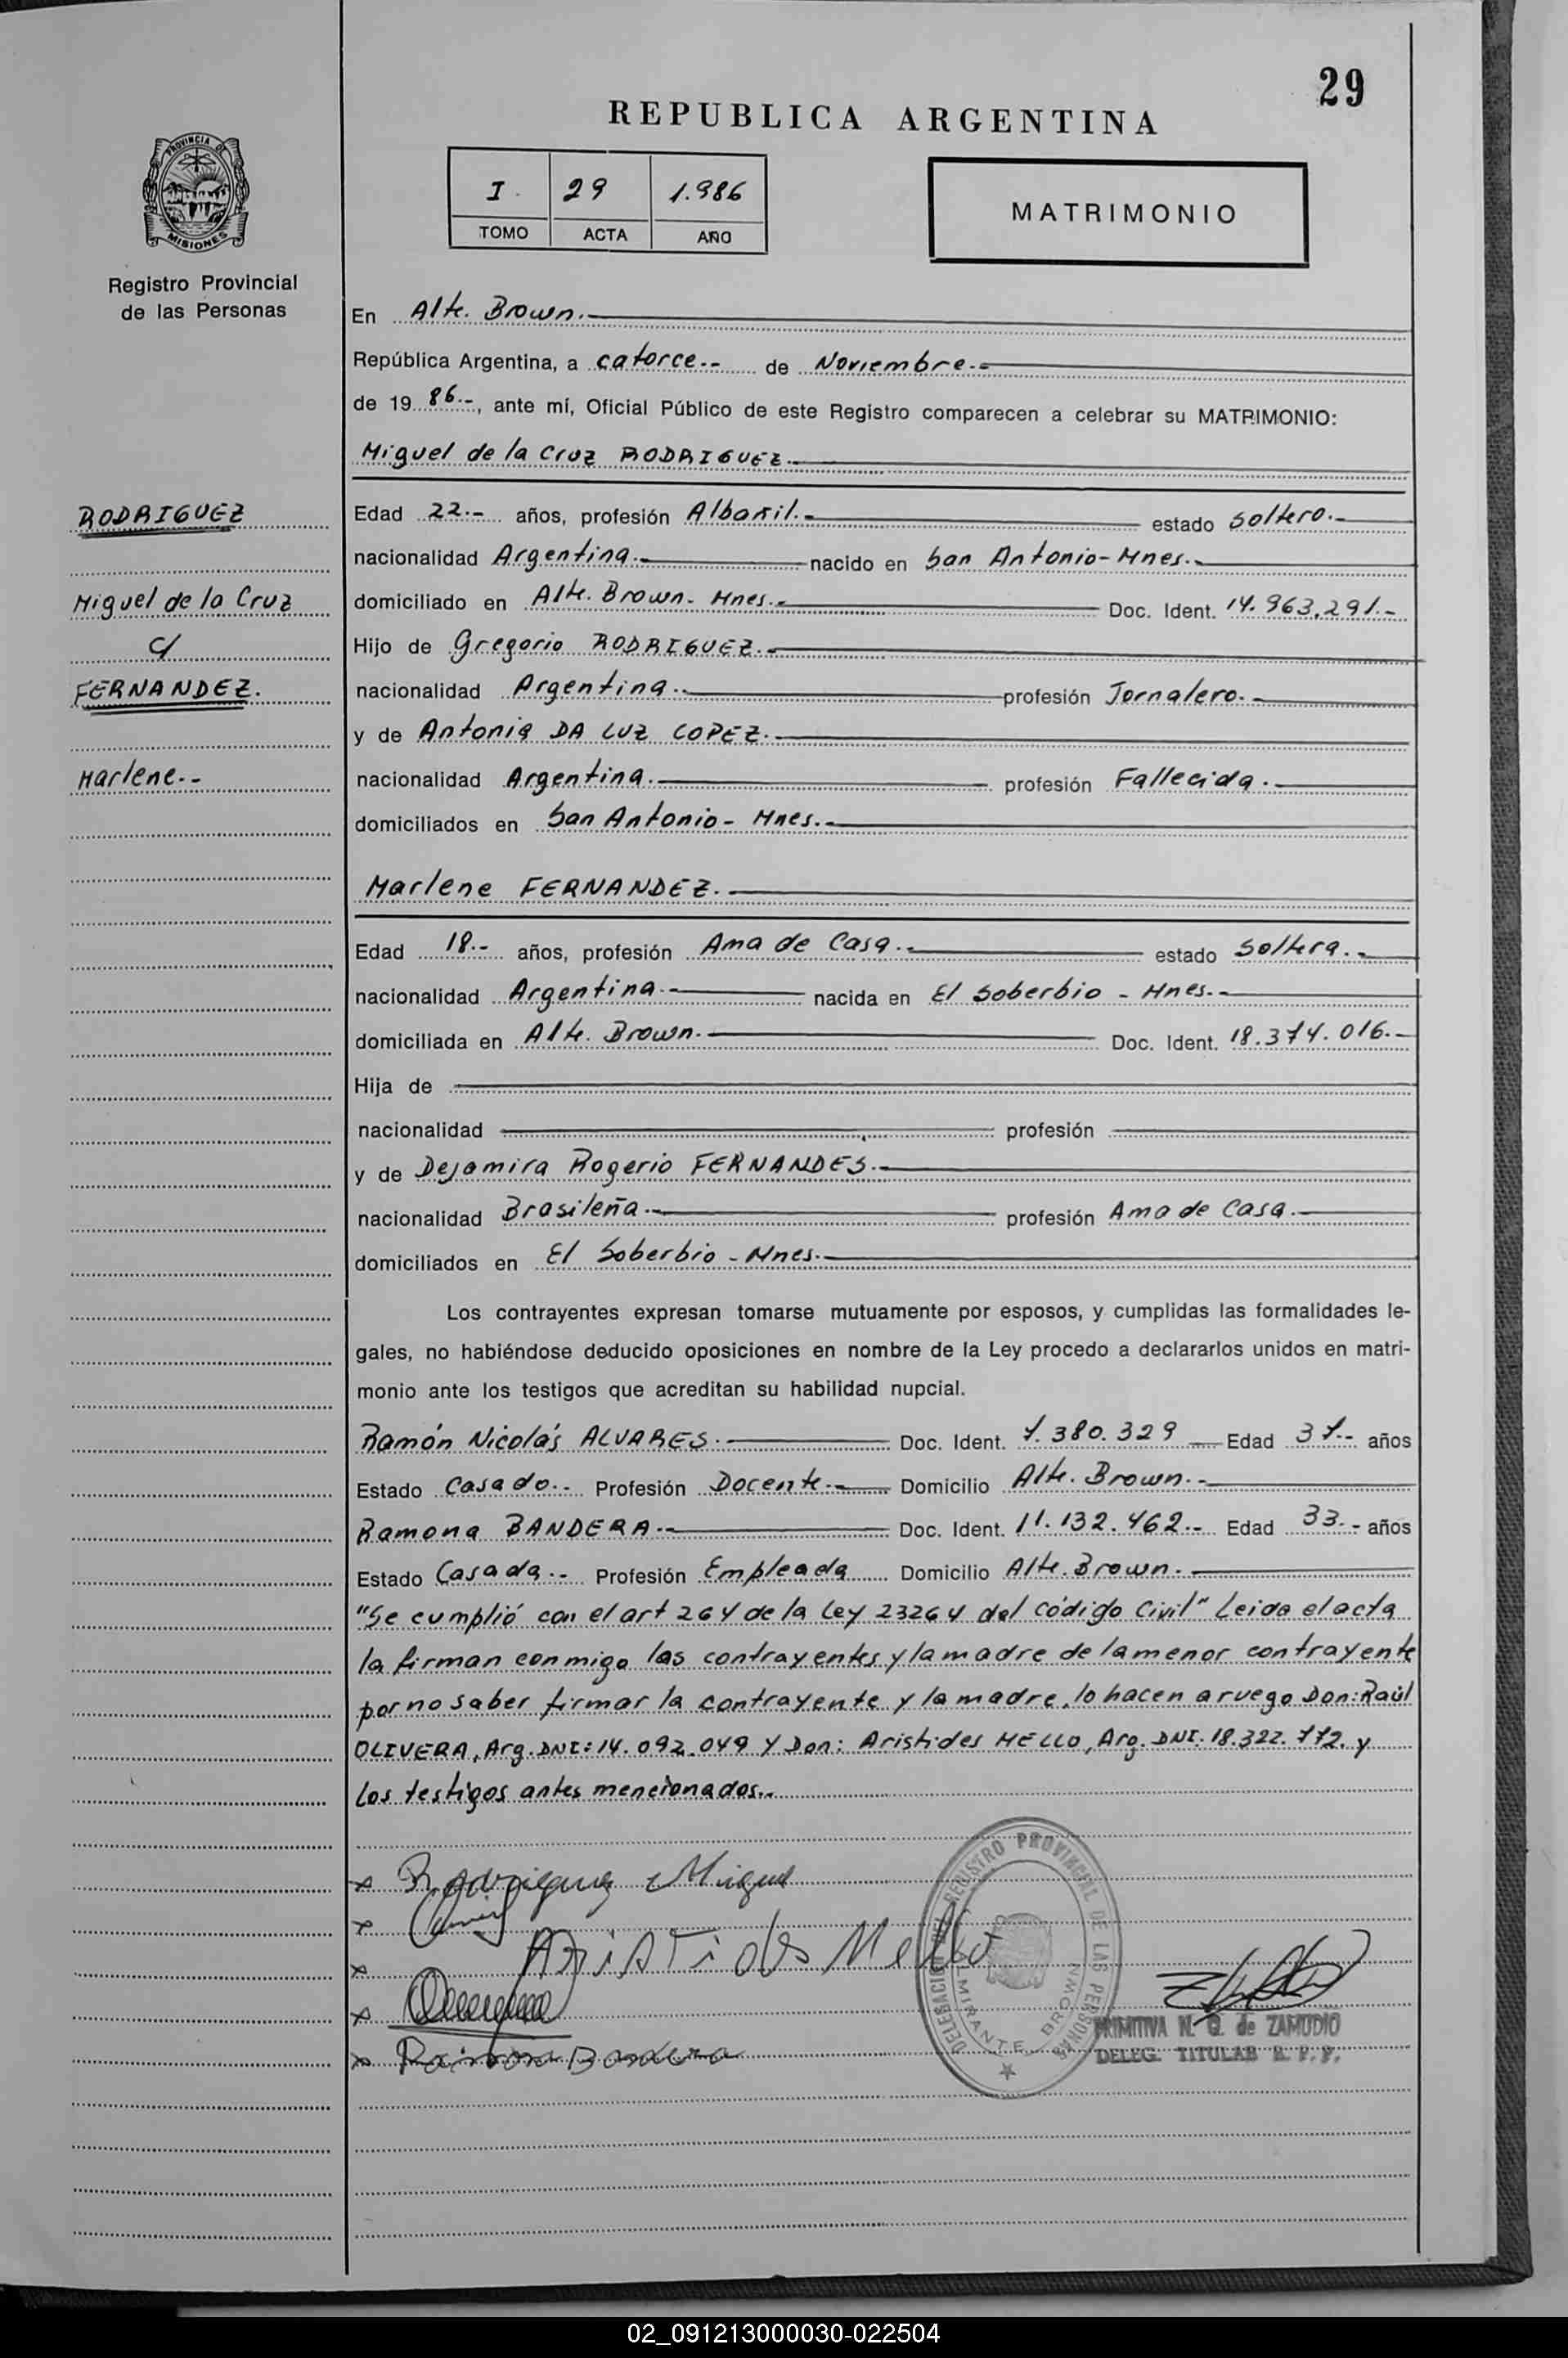 29
REPUBLICA ARGENTINA
I. 29 1.986
TOMO ACTA AÑO
MATRIMONIO
PROVINCIA DE
MISIONES
Registro Provincial
de las Personas
RODRIGUEZ
Miguel de la Cruz
c/
FERNANDEZ.
Marlene.-
En Alte. Brown.
República Argentina, a catorce.- de Noviembre.-
de 19 86.-, ante mí, Oficial Público de este Registro comparecen a celebrar su MATRIMONIO:
Miguel de la Cruz RODRIGUEZ.-
Edad 22.- años, profesión Albañil.- estado Soltero.-
nacionalidad Argentina.- nacido en San Antonio-Mnes.-
domiciliado en Alte. Brown- Mnes.- Doc. Ident. 14.963.291.-
Hijo de Gregorio RODRIGUEZ.-
nacionalidad Argentina.- profesión Jornalero.-
y de Antonia DA LUZ COPEZ.-
nacionalidad Argentina.- profesión Fallecida.-
domiciliados en San Antonio- Mnes.-
Marlene FERNANDEZ.-
Edad 18.- años, profesión Ama de Casa.- estado Soltera.-
nacionalidad Argentina.- nacida en El Soberbio - Mnes.-
domiciliada en Alte. Brown.- Doc. Ident. 18.374.016.-
Hija de
nacionalidad profesión
y de Dejamira Rogerio FERNANDES.-
nacionalidad Brasileña.- profesión Ama de Casa.-
domiciliados en El Soberbio - Mnes.-
Los contrayentes expresan tomarse mutuamente por esposos, y cumplidas las formalidades le-
gales, no habiéndose deducido oposiciones en nombre de la Ley procedo a declararlos unidos en matri-
monio ante los testigos que acreditan su habilidad nupcial.
Ramón Nicolás ALVARES.- Doc. Ident. 7.380.329 Edad 37.- años
Estado Casado.- Profesión Docente.- Domicilio Alte. Brown.-
Ramona BANDERA.- Doc. Ident. 11.132.462.- Edad 33.- años
Estado Casada.- Profesión Empleada Domicilio Alte. Brown.-
"Se cumplió con el art 264 de la Ley 23264 del Código Civil" Leida el acta
la firman conmigo los contrayentes y la madre de la menor contrayente
por no saber firmar la contrayente y la madre, lo hacen a ruego Don: Raúl
OLIVERA, Arg. DNI: 14.092.049 Y Don: Aristides MELLO, Arg. DNI. 18.322.772. y
los testigos antes mencionados.-
x Rodriguez Miguel
x
x Aristides Mello
x
x Ramona Bandera
DELEGACION DEL REGISTRO PROVINCIAL DE LAS PERSONAS
ALMIRANTE BROWN
PRIMITIVA N. G. de ZAMUDIO
DELEG. TITULAR R. P. P.
02_091213000030-022504